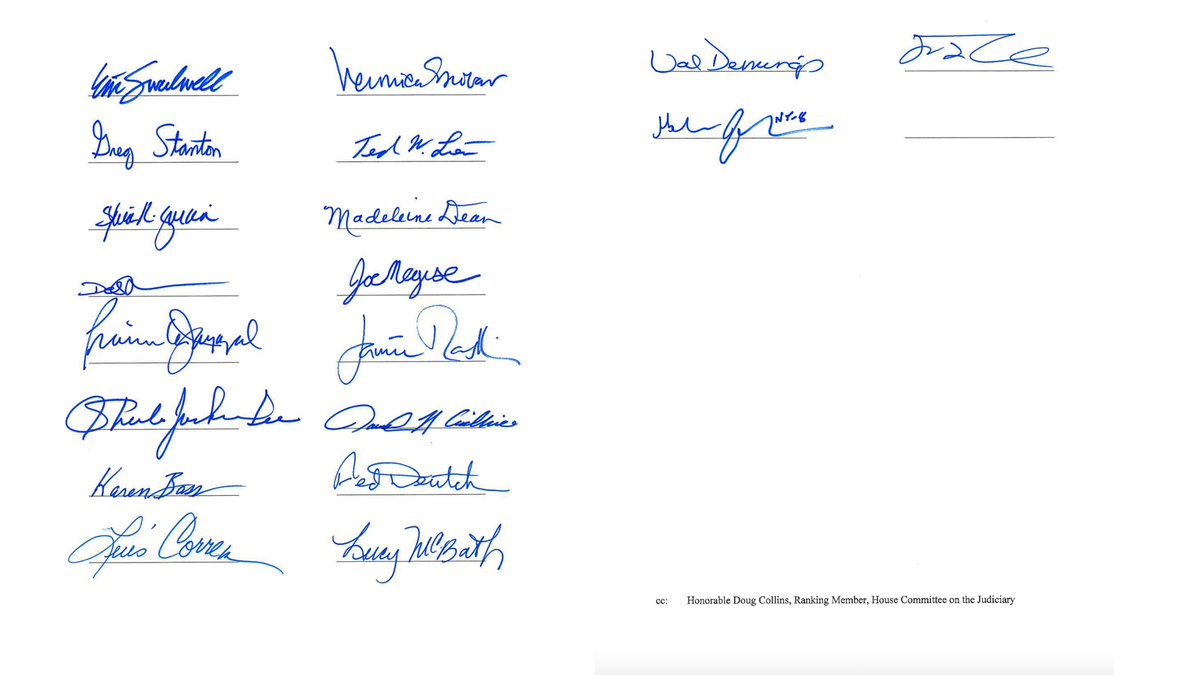 Eric Swalwell
Veronica Escobar
Greg Stanton
Ted W. Lieu
Sylvia R. Garcia
Madeleine Dean
Joe Neguse
Pramila Jayapal
Jamie Raskin
Sheila Jackson Lee
David N Cicilline
Karen Bass
Ted Deutch
Luis Correa
Lucy McBath
Val Demings
NY-8
cc: Honorable Doug Collins, Ranking Member, House Committee on the Judiciary